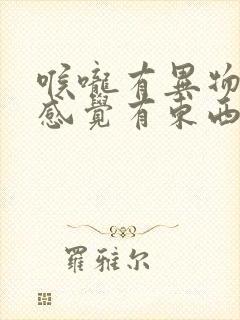 喉嚨有異物
感覺有東西
羅雅尔